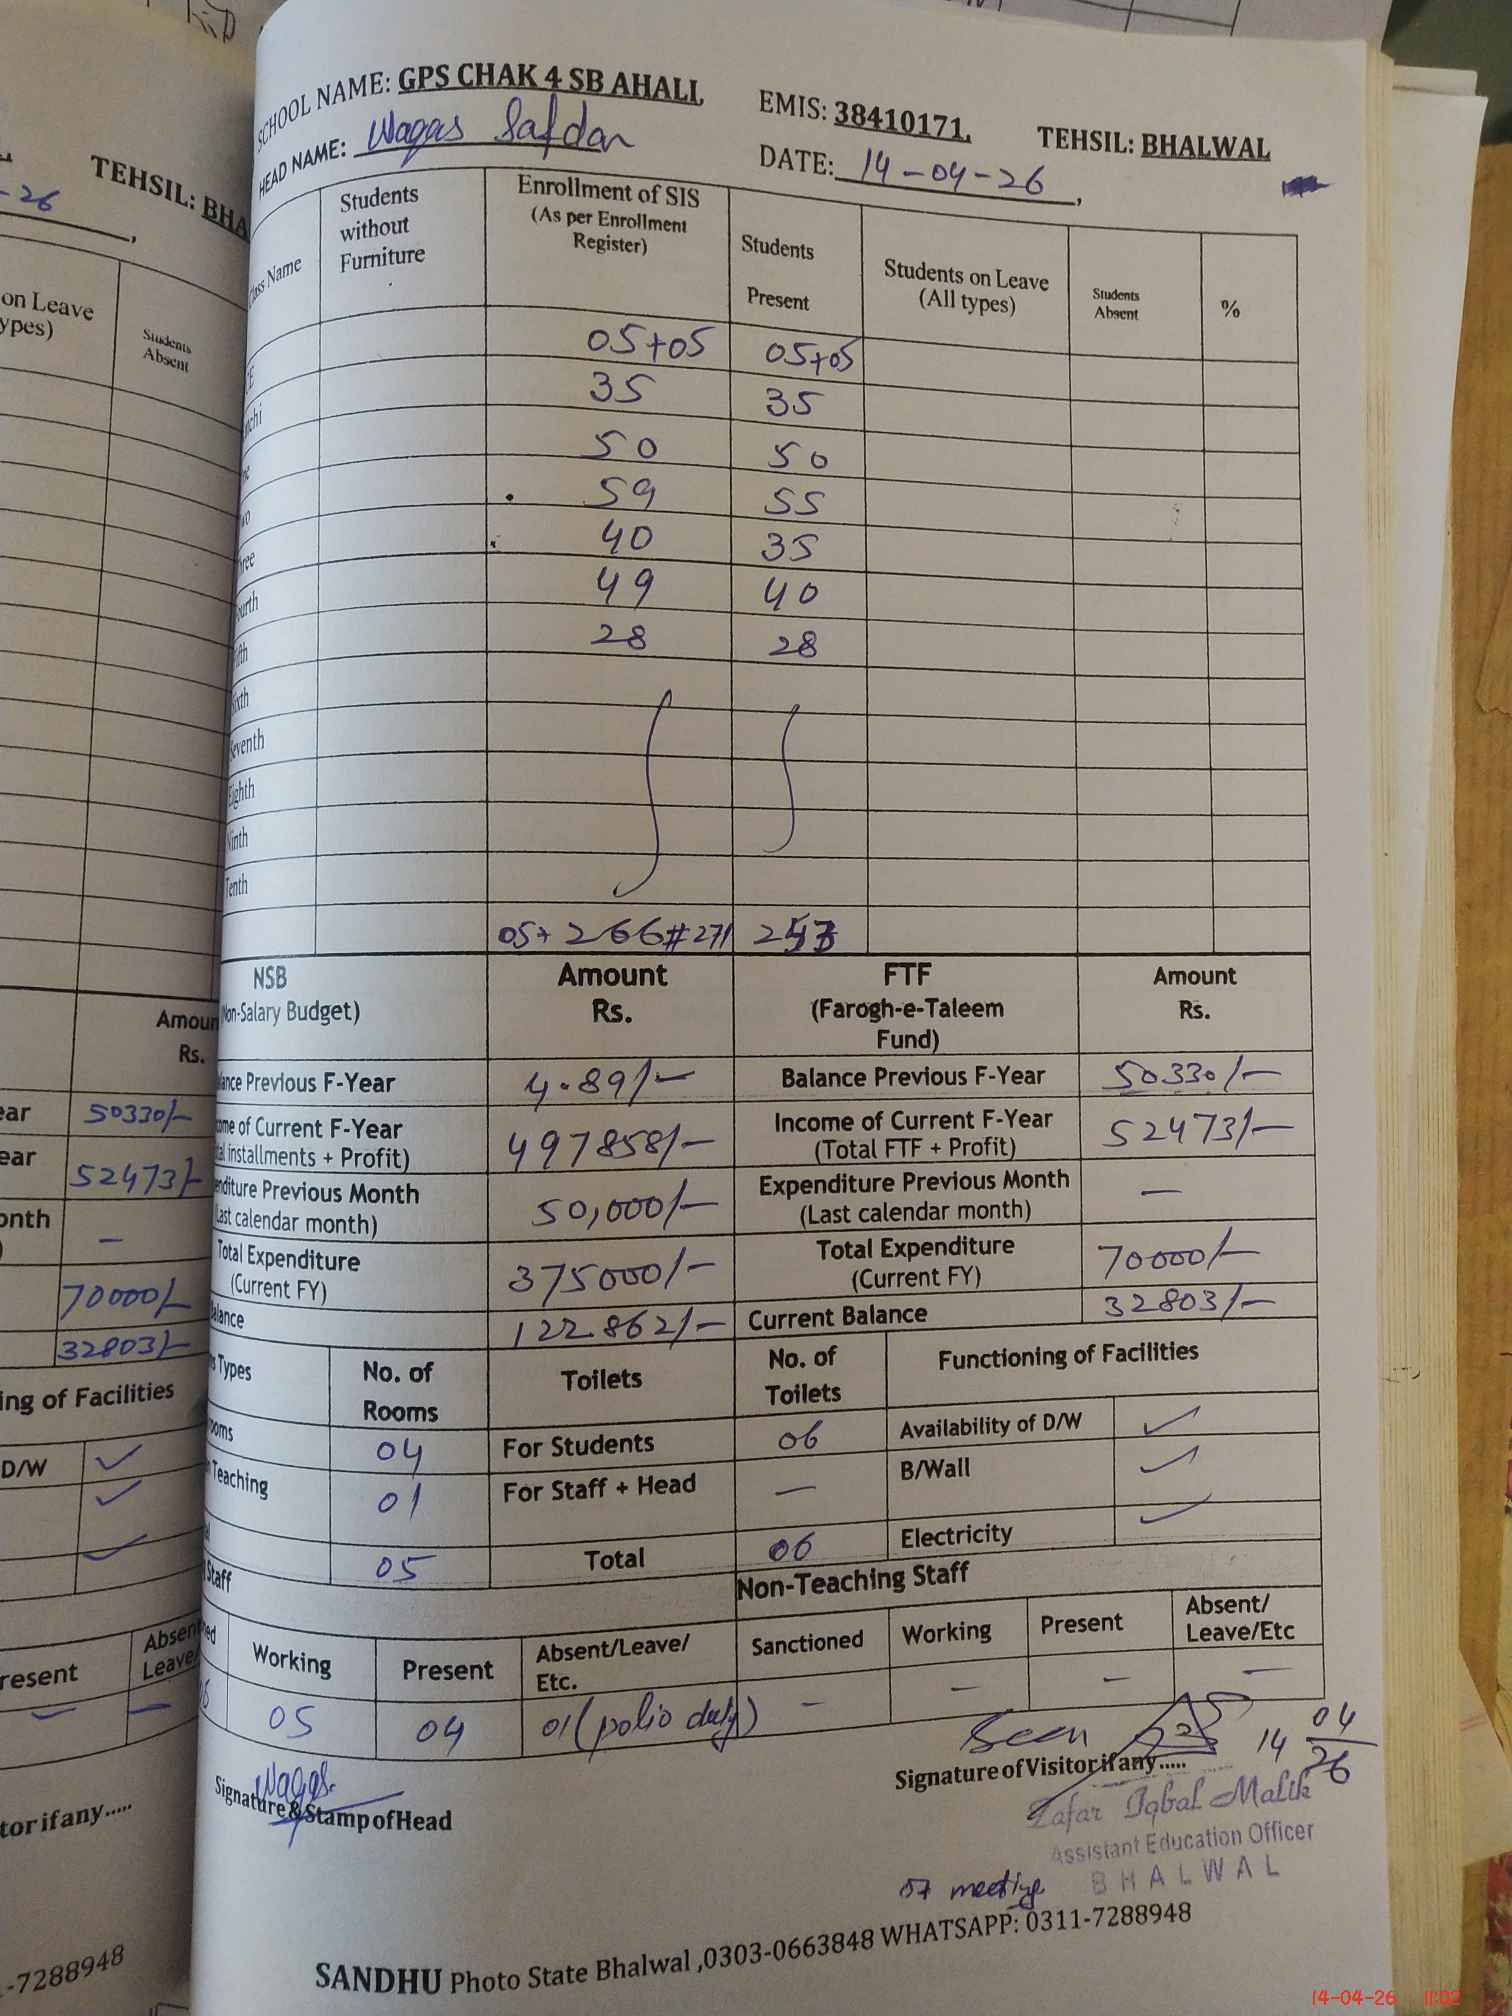 SCHOOL NAME: GPS CHAK 4 SB AHALL EMIS: 38410171, TEHSIL: BHALWAL
HEAD NAME: Waqas Safdar DATE: 14-04-26,
Class Name Students without Furniture Enrollment of SIS (As per Enrollment Register) Students Present Students on Leave (All types) Students Absent %
05+05 05+05
35 35
50 50
59 55
Three 40 35
Fourth 49 40
Fifth 28 28
Sixth
Seventh
Eighth
Ninth
Tenth
05+266#271
NSB Amount FTF Amount
(Non-Salary Budget) Rs. (Farogh-e-Taleem Fund) Rs.
Balance Previous F-Year 4.89/- Balance Previous F-Year 50330/-
Income of Current F-Year 497858/- Income of Current F-Year 52473/-
installments + Profit) (Total FTF + Profit)
Expenditure Previous Month 50,000/- Expenditure Previous Month —
(Last calendar month) (Last calendar month)
Total Expenditure 375000/- Total Expenditure 70000/-
(Current FY) (Current FY)
Balance 122862/- Current Balance 32803/-
Types No. of Rooms Toilets No. of Toilets Functioning of Facilities
rooms 04 For Students 06 Availability of D/W ✓
Teaching 01 For Staff + Head — B/Wall ✓
05 Total 06 Electricity ✓
Staff Non-Teaching Staff
Working Present Absent/Leave/ Etc. Sanctioned Working Present Absent/ Leave/Etc
05 04 01 (polio duty) — — — —
Seen 14 04/26
Signature & Stamp of Head Waqas Signature of Visitor if any.....
Zafar Iqbal Malik
Assistant Education Officer
BHALWAL
meeting
SANDHU Photo State Bhalwal ,0303-0663848 WHATSAPP: 0311-7288948
14-04-26 11:02
TEHSIL: BHA
-26
on Leave
ypes)
Students Absent
Amoun
Rs.
ear 50330/-
ear 52473/-
onth —
70000/-
32803/-
ing of Facilities
D/W ✓
✓
✓
resent Absen Leave/
— —
tor if any.....
-7288948